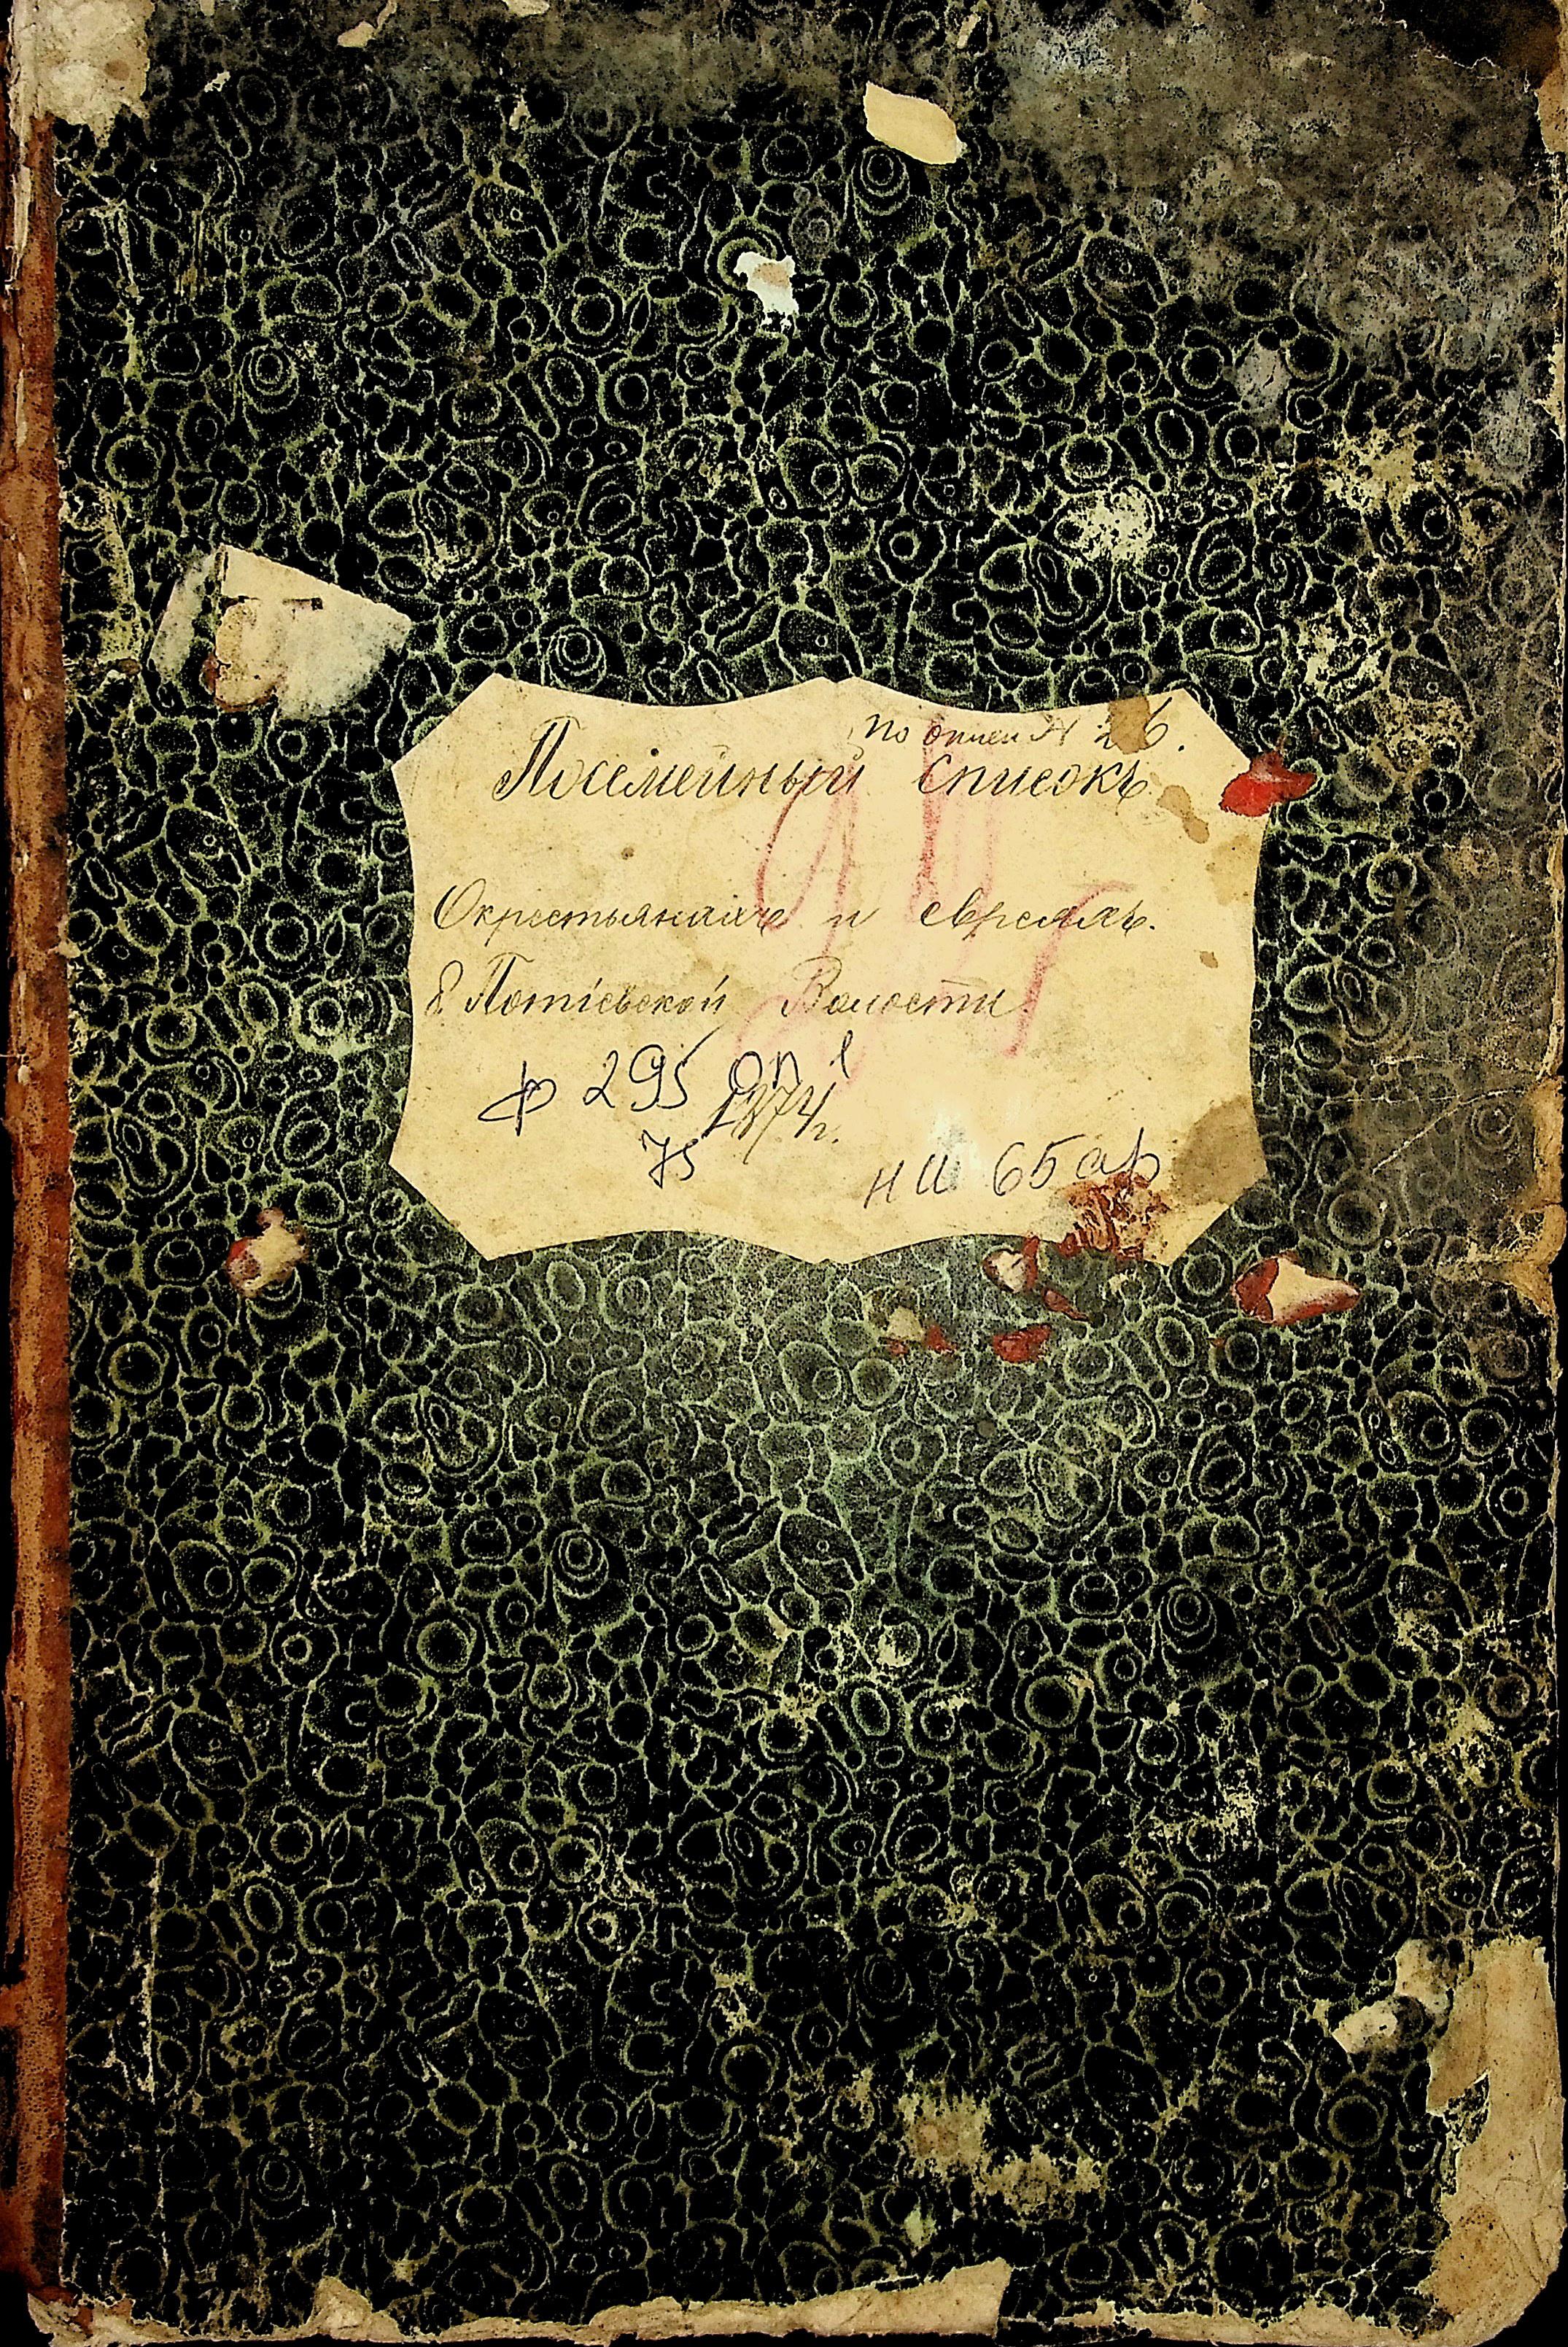 по описи № 26.
Посемейный списокъ
О крестьянахъ и евреяхъ.
Потіевской Волости
ф 295 оп 1
1874 г.
75
65 ар